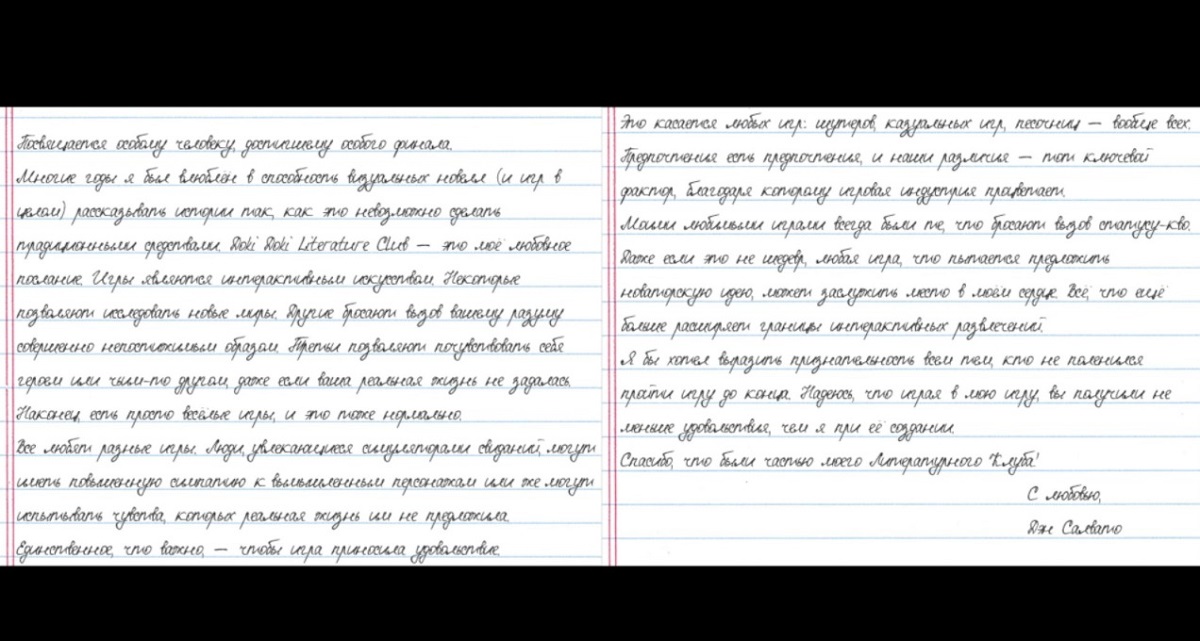 Посвящается особому человеку, достигшему особого финала.
Многие годы я был влюблён в способность визуальных новелл (и игр в
целом) рассказывать истории так, как это невозможно сделать
традиционными средствами. Doki Doki Literature Club — это моё любовное
послание. Игры являются интерактивным искусством. Некоторые
позволяют исследовать новые миры. Другие бросают вызов вашему разуму
совершенно непостижимым образом. Третьи позволяют почувствовать себя
героем или чьим-то другом, даже если ваша реальная жизнь не задалась.
Наконец, есть просто весёлые игры, и это тоже нормально.
Все любят разные игры. Люди, увлекающиеся симуляторами свиданий, могут
иметь повышенную симпатию к вымышленным персонажам или же могут
испытывать чувства, которых реальная жизнь им не предложила.
Единственное, что важно, — чтобы игра приносила удовольствие.
Это касается любых игр: шутеров, казуальных игр, песочниц — вообще всех.
Предпочтения есть предпочтения, и наши различия — тот ключевой
фактор, благодаря которому игровая индустрия процветает.
Моими любимыми играми всегда были те, что бросают вызов статусу-кво.
Даже если это не шедевр, любая игра, что пытается предложить
новаторскую идею, может заслужить место в моём сердце. Всё, что ещё
больше расширяет границы интерактивных развлечений.
Я бы хотел выразить признательность всем тем, кто не поленился
пройти игру до конца. Надеюсь, что играя в мою игру, вы получили не
меньше удовольствия, чем я при её создании.
Спасибо, что были частью моего Литературного Клуба!
С любовью,
Дэн Сальвато